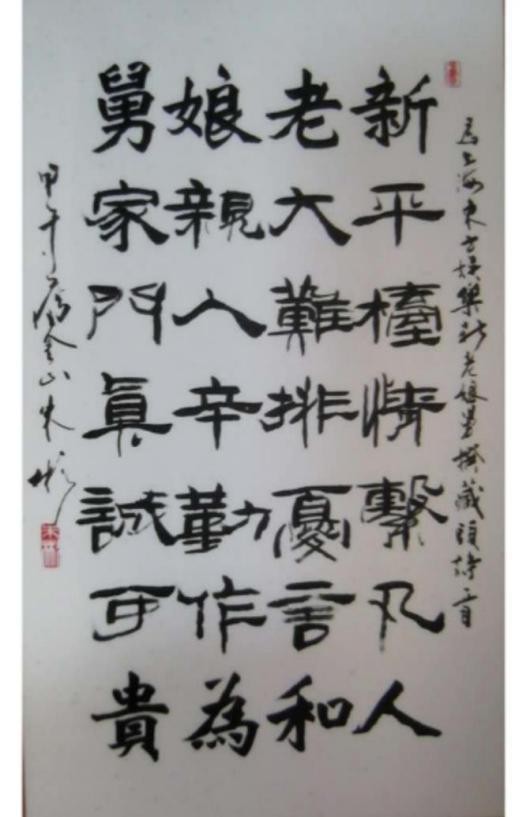 為上海東方娛樂新老娘舅撰藏頭詩一首
新平檯情繫凡人
老大難排憂言和
娘親人辛勤作為
舅家門眞誠可貴
甲午金山朱